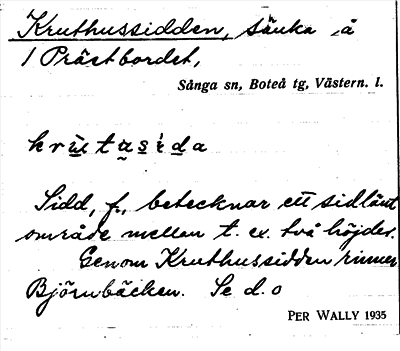 Kruthussidden, sänka å
1 Prästbordet,
Sånga sn, Boteå tg, Västern. l.
krùtas̱ida
Sidd, f., betecknar ett sidlänt
område mellan t. ex. två höjder.
Genom Kruthussidden rinner
Björnbäcken. Se d. o
PER WALLY 1935